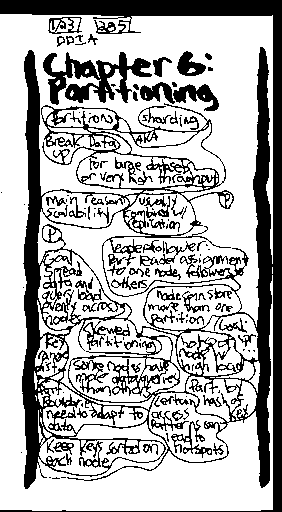 DDIA
Chapter 6:
Partitioning
Partitions sharding
Break Data AKA
up
For large datasets
or very high throughput
main reason usually
scalability combined w/
replication
P
P
leader+follower:
Part leader assignment
to one node, followers to
others
Goal
spread
data and
query load
evenly across
nodes
node can store
more than one
partition
Skewed
Partitioning
Goal:
hotspot
node w/
high load
Key
range
Some nodes have
more data/queries
than others
Part. by
certain hash of
key
Part
Boundaries
need to adapt to
data
access
patterns can
lead to
hotspots
Keep keys sorted on
each node